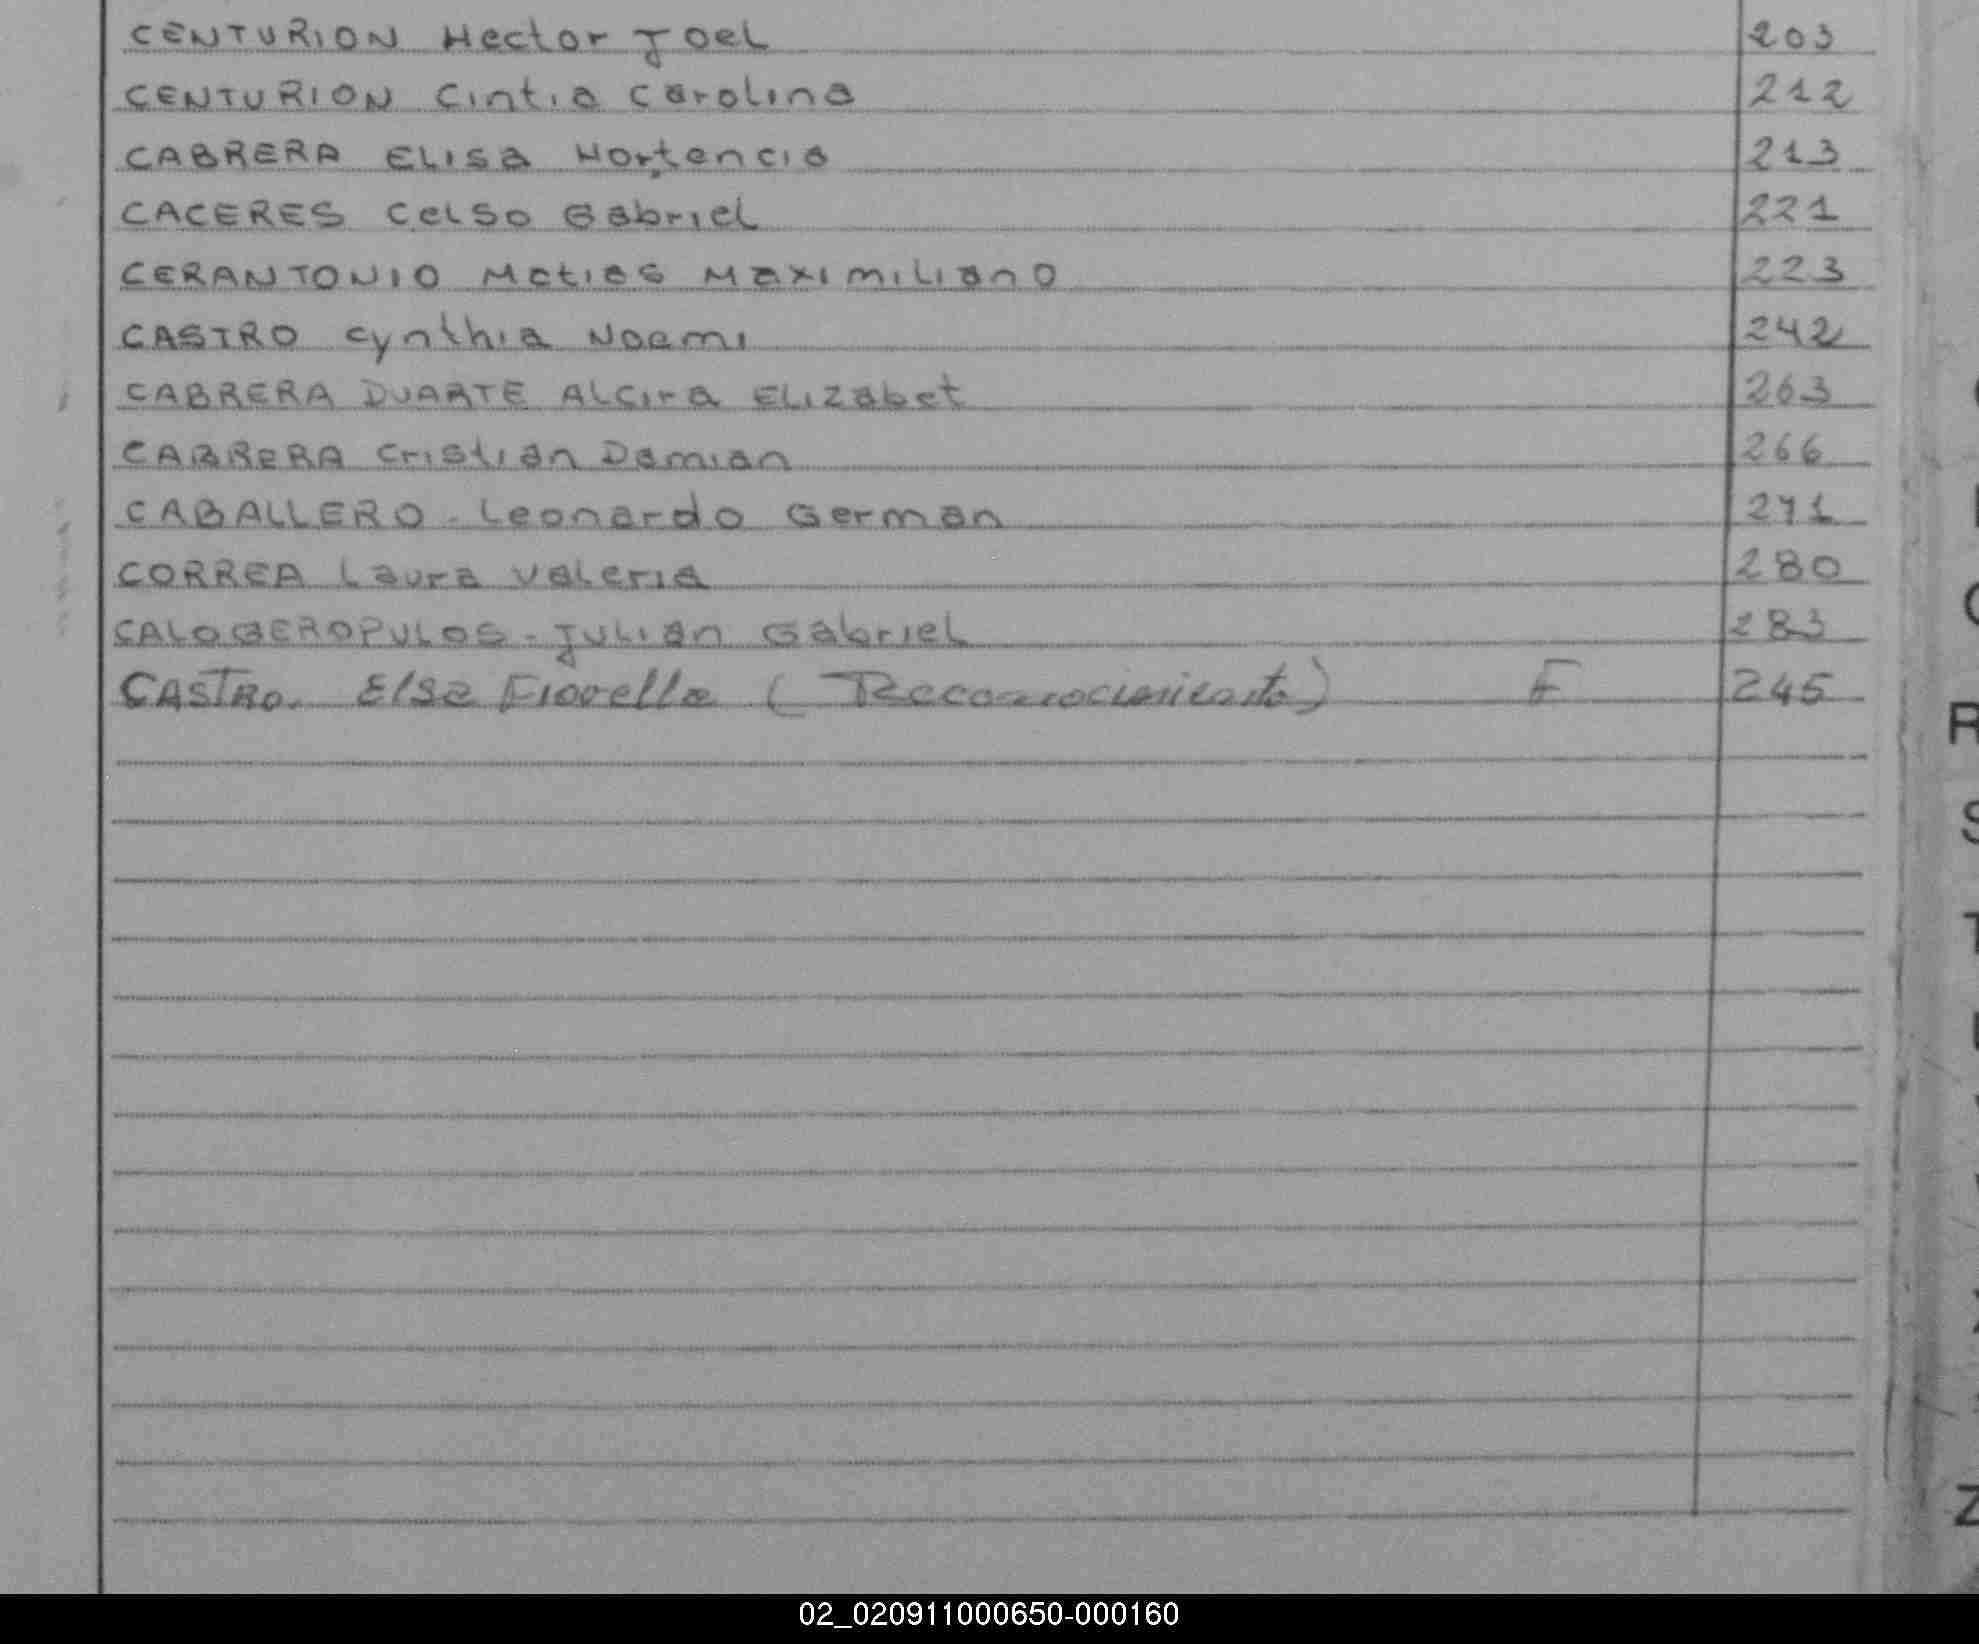 CENTURION Hector Joel 203
CENTURION Cintia Carolina 212
CABRERA Elisa Hortencia 213
CACERES Celso Gabriel 221
CERANTONIO Matias Maximiliano 223
CASTRO Cynthia Noemi 242
CABRERA DUARTE Alcira Elizabet 263
CABRERA Cristian Damian 266
CABALLERO - Leonardo German 271
CORREA Laura Valeria 280
CALOGEROPULOS - Julian Gabriel 283
CASTRO. Elsa Fiorella (Reconocimiento) F 245
R
S
T
Z
02_020911000650-000160